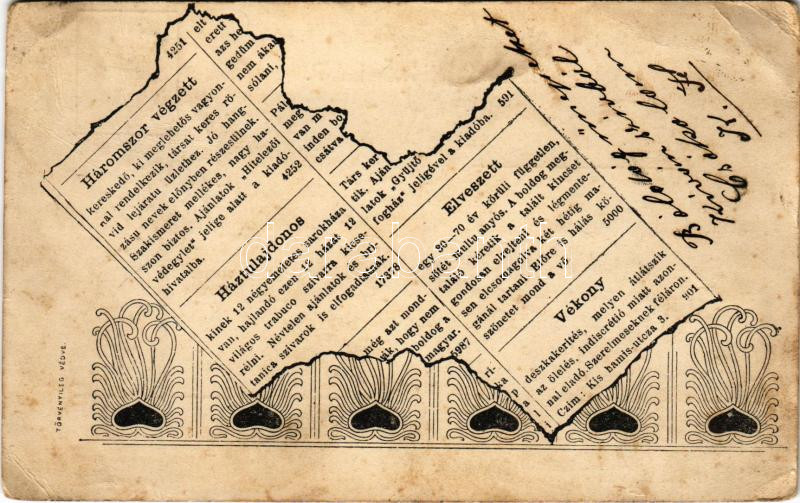 4251
Háromszor végzett
kereskedő, ki meglehetős vagyon-
nal rendelkezik, társat keres rö-
vid lejáratu üzlethez. Jó hang-
zásu nevek előnyben részesülnek.
Szakismeret mellékes, nagy ha-
szon biztos. Ajánlatok „Hitelezői
védegylet" jelige alatt a kiadó-
hivatalba. 4252
Háztulajdonos
kinek 12 négyemeletes sarokháza
van, hajlandó ezen 12 házat 12
világos trabuco szivarra kicse-
rélni. Névtelen ajánlatok és bri-
tanica szivarok is elfogadtatnak.
elt
erett
azs he
gedűm
nem akar
sólani,
Pál
van m
inden bo
csátva
meg
még azt mond-
juk hogy nem
boldog a
magyar.
5987
Társ ker
tik. Ajánl
latok „Gyüjtő
fogház" jeligével a kiadóba. 591
Elveszett
egy 30–70 év körüli független,
sötét kanlo anyós. A boldog meg-
találó kéretik a talált kincset
gondosan elrejteni és légmente-
sen elcsomagolva két hétig ma-
gánál tartani. Előre is hálás kö-
szönetet mond a vő 5000
Vékony
deszkakerités, melyen átlátszik
az ölelés, indiscréció miatt azon-
nal eladó. Szerelmeseknek féláron.
Czim: Kis hamis-utcza 3. 901
TÖRVÉNYILEG VÉDVE.
darabanth